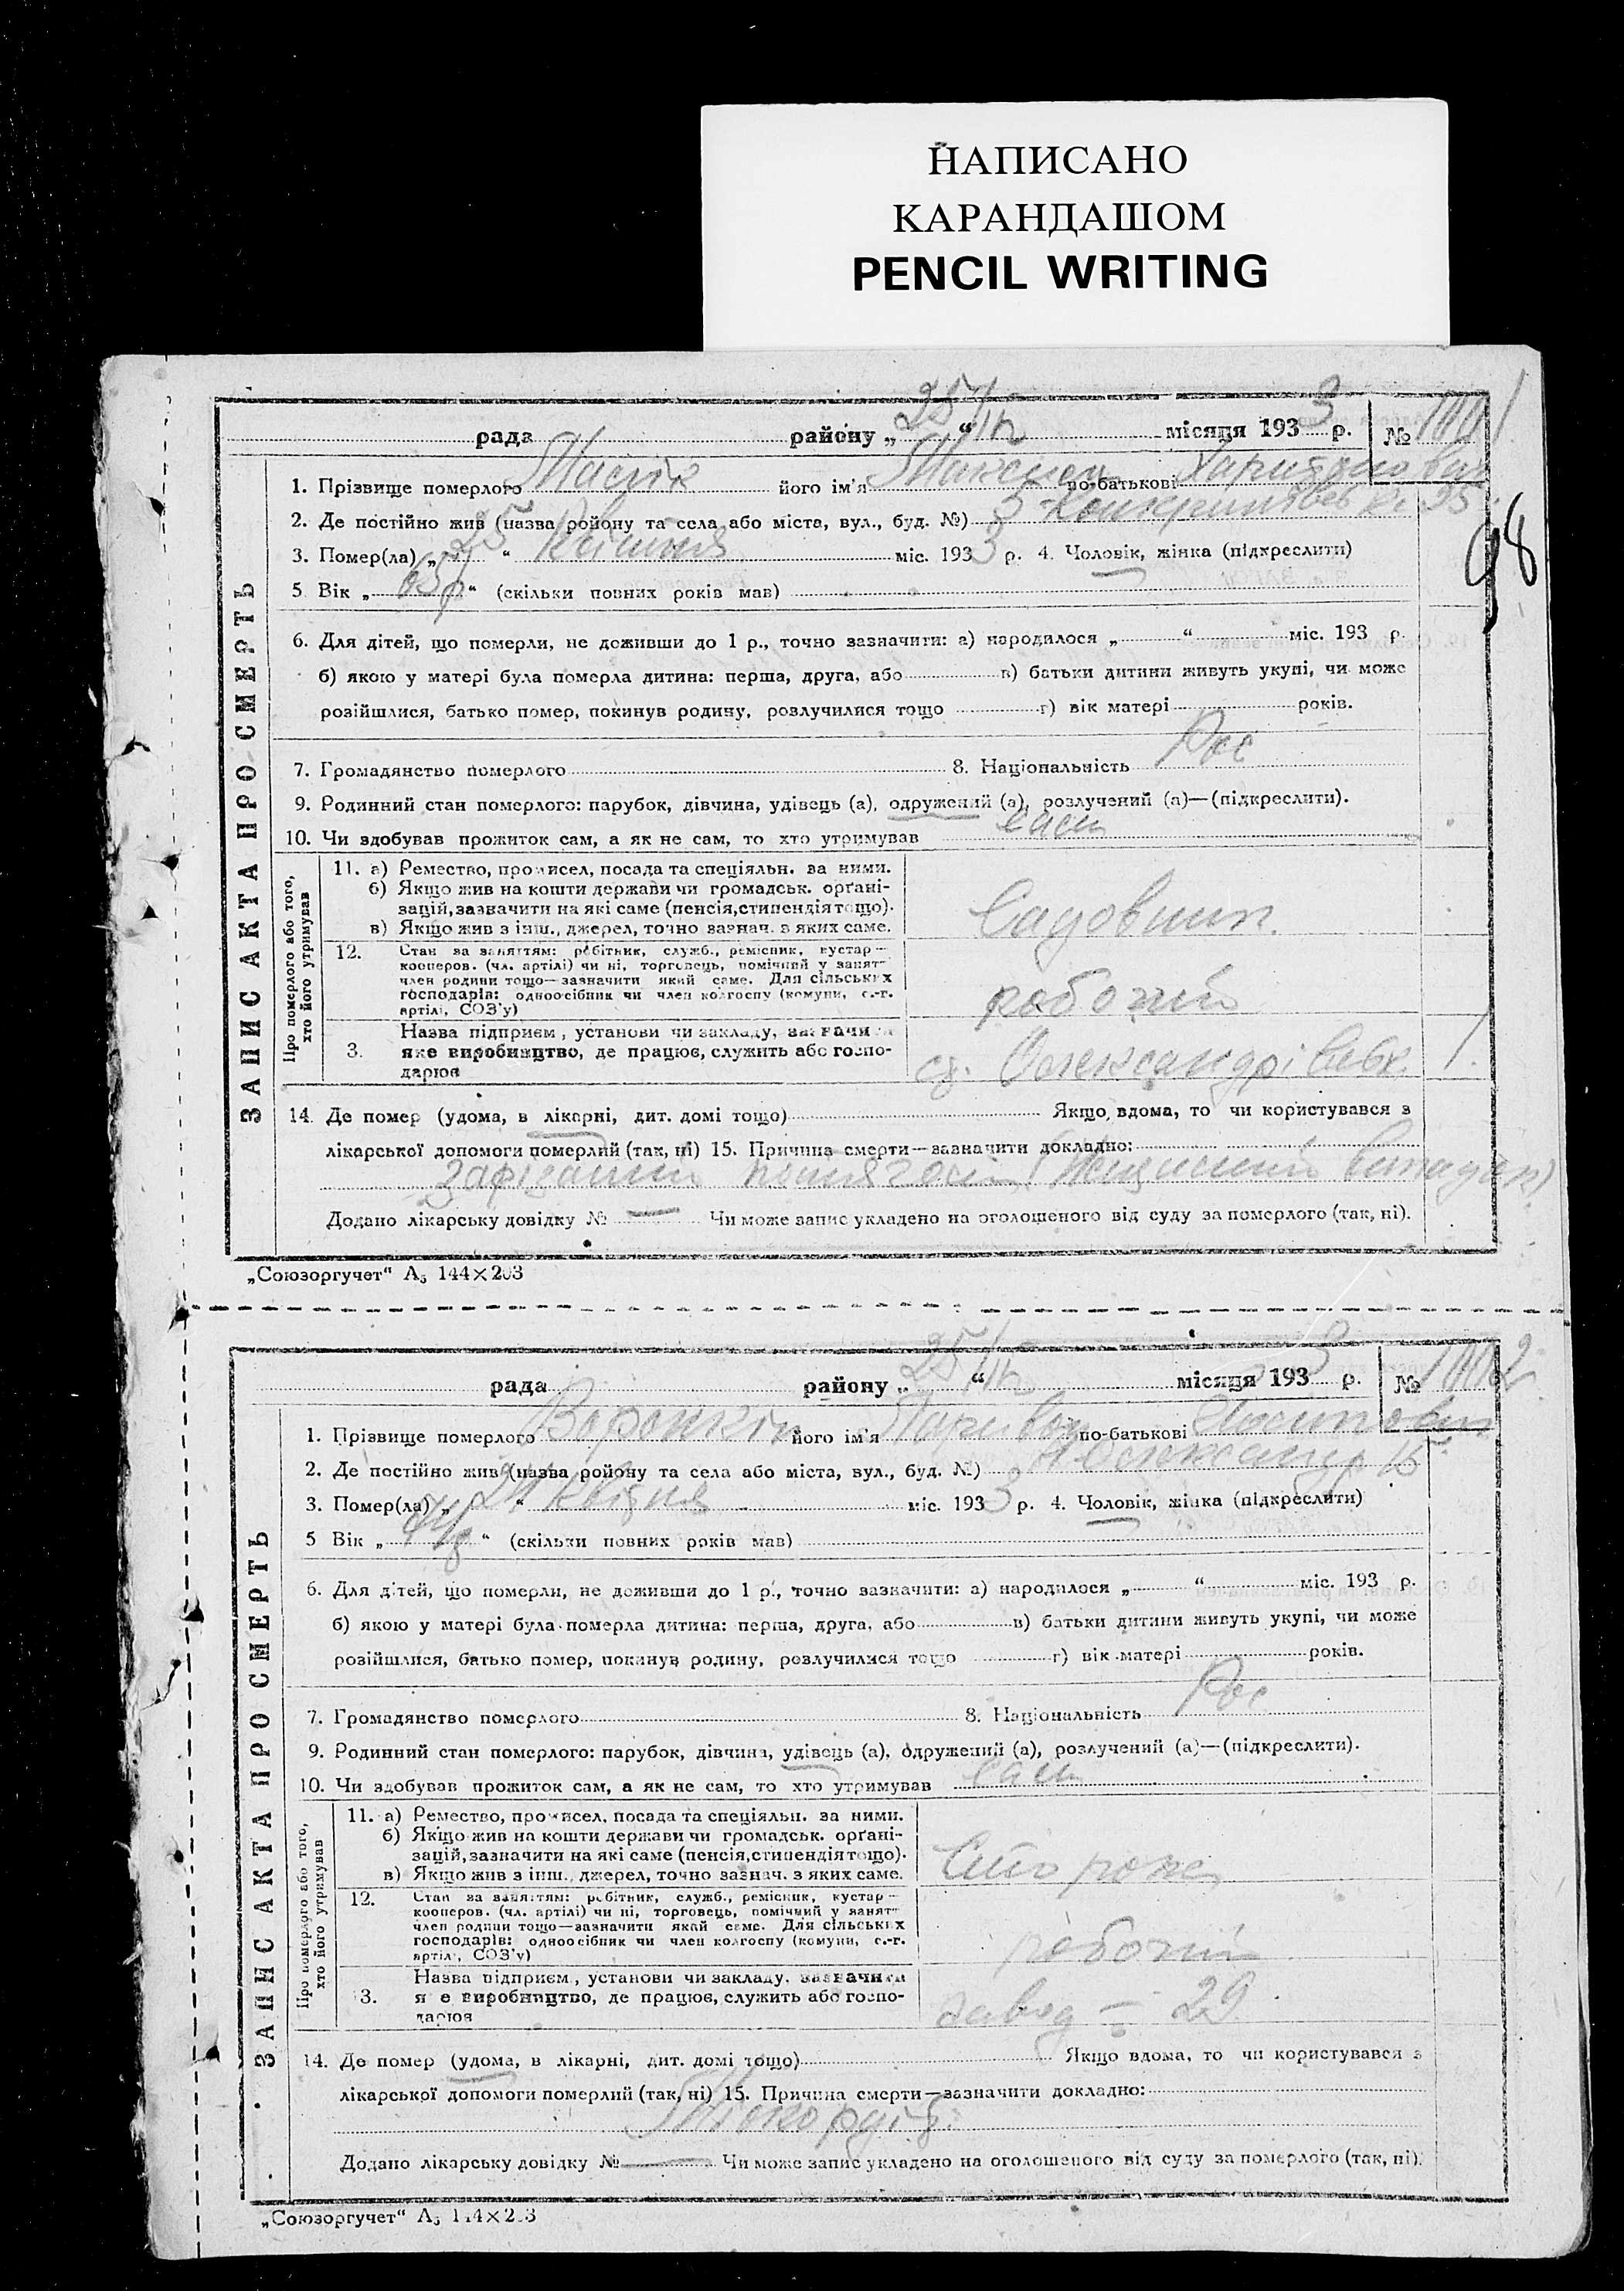 НАПИСАНО
КАРАНДАШОМ
PENCIL WRITING
рада района „25“ місяця 1933 р. № 1001
98
ЗАПИС АКТА ПРО СМЕРТЬ
1. Прізвище померлого його ім'я Максим по-батькові Харитонович
2. Де постійно жив (назва району та села або міста, вул., буд. №)
3. Помер(ла) „25“ Квітня міс. 1933 р. 4. Чоловік, жінка (підкреслити)
5 Вік „65 р“ (скільки повних років мав)
6. Для дітей, що померли, не доживши до 1 р., точно зазначити: а) народилося „ “ міс. 193 р.
б) якою у матері була померла дитина: перша, друга, або в) батьки дитини живуть укупі, чи може
розійшлися, батько помер, покинув родину, розлучилися тощо г) вік матері років.
7. Громадянство померлого 8. Національність Рос
9. Родинний стан померлого: парубок, дівчина, удівець (а), одружений (а), розлучений (а)—(підкреслити).
10. Чи здобував прожиток сам, а як не сам, то хто утримував сам
Про померлого або того, хто його утримував
11. а) Ремество, промисел, посада та спеціяльн. за ними.
б) Якщо жив на кошти держави чи громадськ. органі-
зацій, зазначити на які саме (пенсія, стипендія тощо).
в) Якщо жив з інш., джерел, точно зазнач. з яких саме.
Садовник
12. Стан за заняттям: робітник, служб., ремісник, кустар—
кооперов. (чл. артілі) чи ні, торговець, помічний у занят—
член родини тощо—зазначити який саме. Для сільських
господарів: одноосібник чи член колгоспу (комуни, с.-г.
артілі, СОЗ'у)
робочий
Назва підприєм., установи чи закладу, зазначити
3. яке виробництво, де працює, служить або госпо-
дарює
Олександрівськ.
14. Де помер (удома, в лікарні, дит. домі тощо) Якщо вдома, то чи користувався з
лікарської допомоги померлий (так, ні) 15. Причина смерти—зазначити докладно:
зарізаний потягом
Додано лікарську довідку № — Чи може запис укладено на оголошеного від суду за померлого (так, ні).
„Союзоргучет“ А₅ 144×203
рада району „25“ місяця 1933 р. № 1002
ЗАПИС АКТА ПРО СМЕРТЬ
1. Прізвище померлого його ім'я по-батькові
2. Де постійно жив (назва району та села або міста, вул., буд. №)
3. Помер(ла) „24“ Квітня міс. 1933 р. 4. Чоловік, жінка (підкреслити)
5 Вік „ “ (скільки повних років мав)
6. Для дітей, що померли, не доживши до 1 р., точно зазначити: а) народилося „ “ міс. 193 р.
б) якою у матері була померла дитина: перша, друга, або в) батьки дитини живуть укупі, чи може
розійшлися, батько помер, покинув родину, розлучилися тощо г) вік матері років.
7. Громадянство померлого 8. Національність Рос
9. Родинний стан померлого: парубок, дівчина, удівець (а), одружений (а), розлучений (а)—(підкреслити).
10. Чи здобував прожиток сам, а як не сам, то хто утримував сам
Про померлого або того, хто його утримував
11. а) Ремество, промисел, посада та спеціяльн. за ними.
б) Якщо жив на кошти держави чи громадськ. органі-
зацій, зазначити на які саме (пенсія, стипендія тощо).
в) Якщо жив з інш., джерел, точно зазнач. з яких саме.
Сторож
12. Стан за заняттям: робітник, служб., ремісник, кустар—
кооперов. (чл. артілі) чи ні, торговець, помічний у занят—
член родини тощо—зазначити який саме. Для сільських
господарів: одноосібник чи член колгоспу (комуни, с.-г.
артілі, СОЗ'у)
робочий
Назва підприєм., установи чи закладу, зазначити
3. яке виробництво, де працює, служить або госпо-
дарює
завод — 29
14. Де помер (удома, в лікарні, дит. домі тощо) Якщо вдома, то чи користувався з
лікарської допомоги померлий (так, ні) 15. Причина смерти—зазначити докладно:
Додано лікарську довідку № — Чи може запис укладено на оголошеного від суду за померлого (так, ні).
„Союзоргучет“ А₅ 144×203